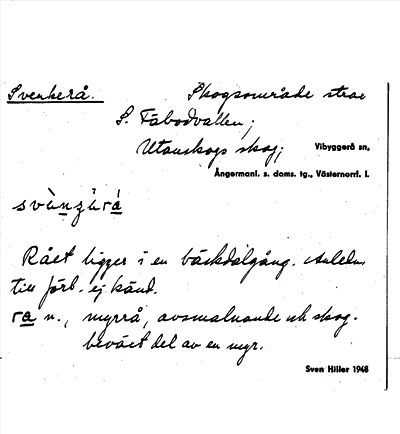 Svenkerå. Skogsområde strax
S. Fäbodvallen;
Utanskogs skog; Vibyggerå sn,
Ångermanl. s. doms. tg., Västernorrl. l.
svὺnzὶrá
Rået ligger i en bäckdalgång. Anledn
till förb. ej känd.
ra n., myrrå, avsmalnande och skog-
beväxt del av en myr.
Sven Hiller 1948